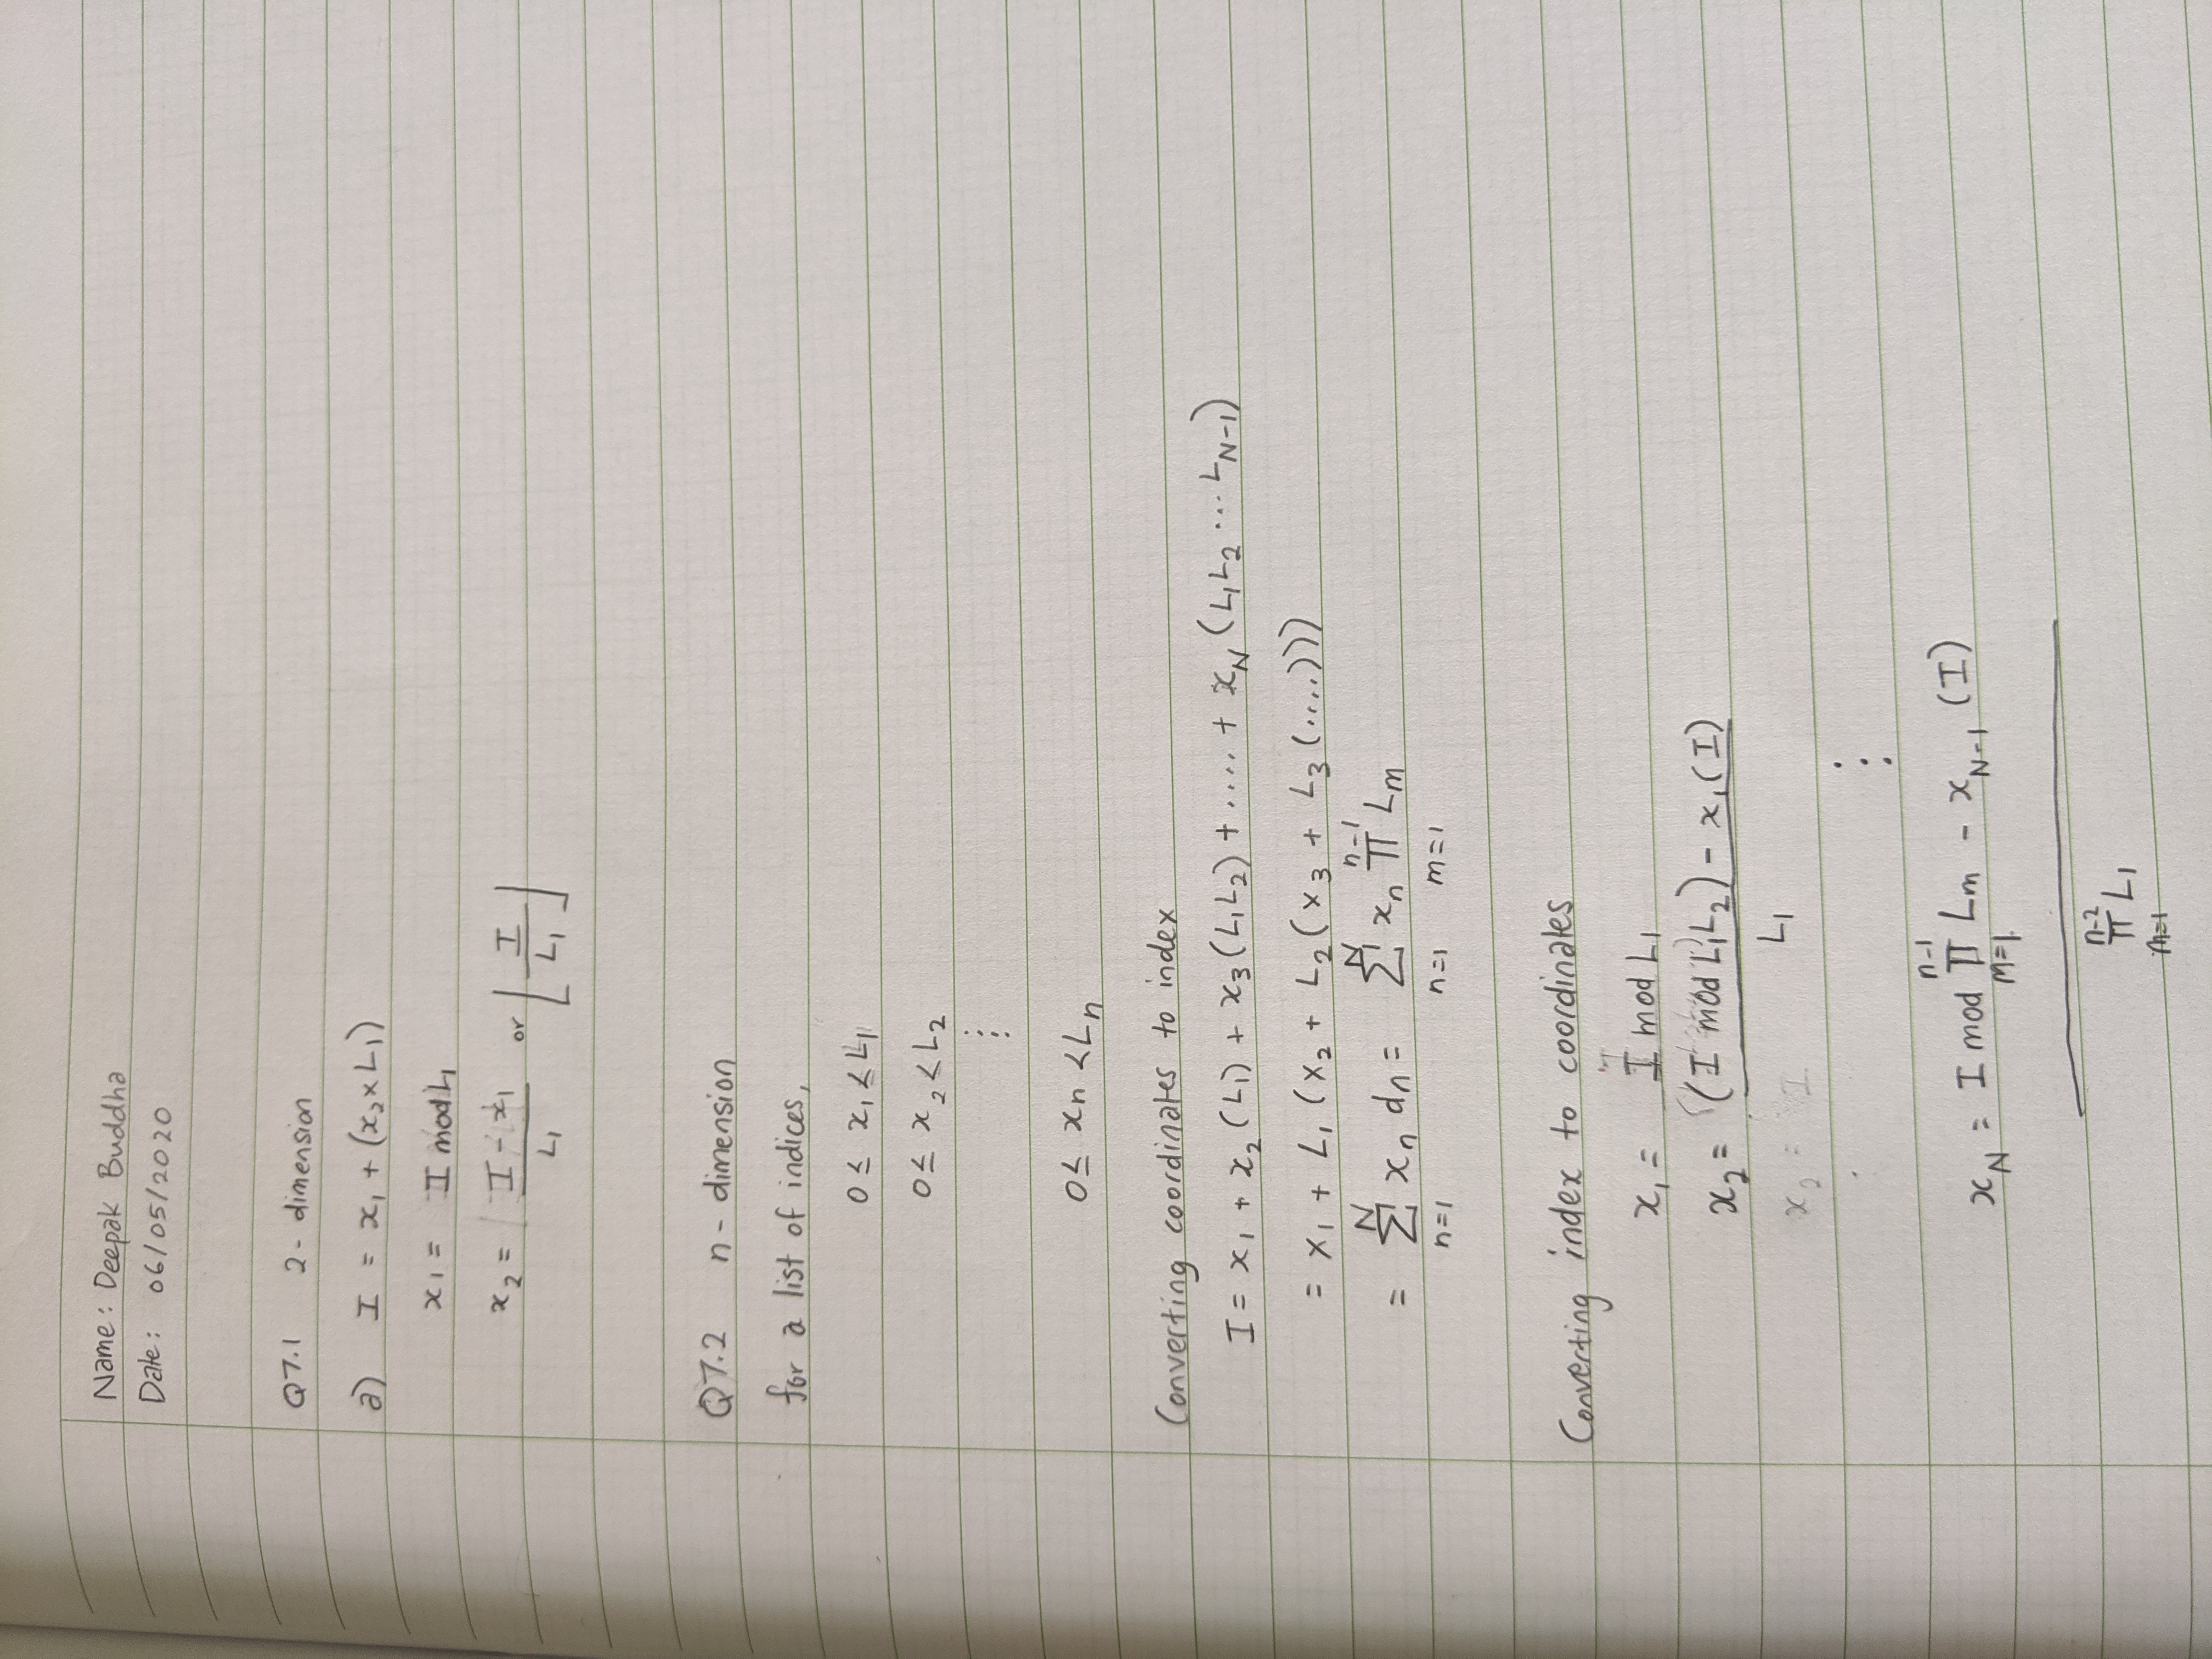 Name: Deepak Buddha
Date: 06/05/2020
Q7.1 2-dimension
a) I = x₁ + (x₂ × L₁)
x₁ = I mod L₁
x₂ = (I - x₁)/L₁ or ⌊I/L₁⌋
Q7.2 n-dimension
for a list of indices,
0 ≤ x₁ < L₁
0 ≤ x₂ < L₂
⋮
0 ≤ xn < Ln
Converting coordinates to index
I = x₁ + x₂(L₁) + x₃(L₁L₂) + .... + x_N(L₁L₂ ... L_{N-1})
= x₁ + L₁(x₂ + L₂(x₃ + L₃(....)))
= ∑_{n=1}^{N} x_n d_n = ∑_{n=1}^{N} x_n ∏_{m=1}^{n-1} L_m
Converting index to coordinates
x₁ = I mod L₁
x₂ = ((I mod L₁L₂) - x₁(I))/L₁
x₂ = I
⋮
x_N = (I mod ∏_{m=1}^{n-1} L_m - x_{N-1}(I))/(∏_{m=1}^{n-2} L₁)